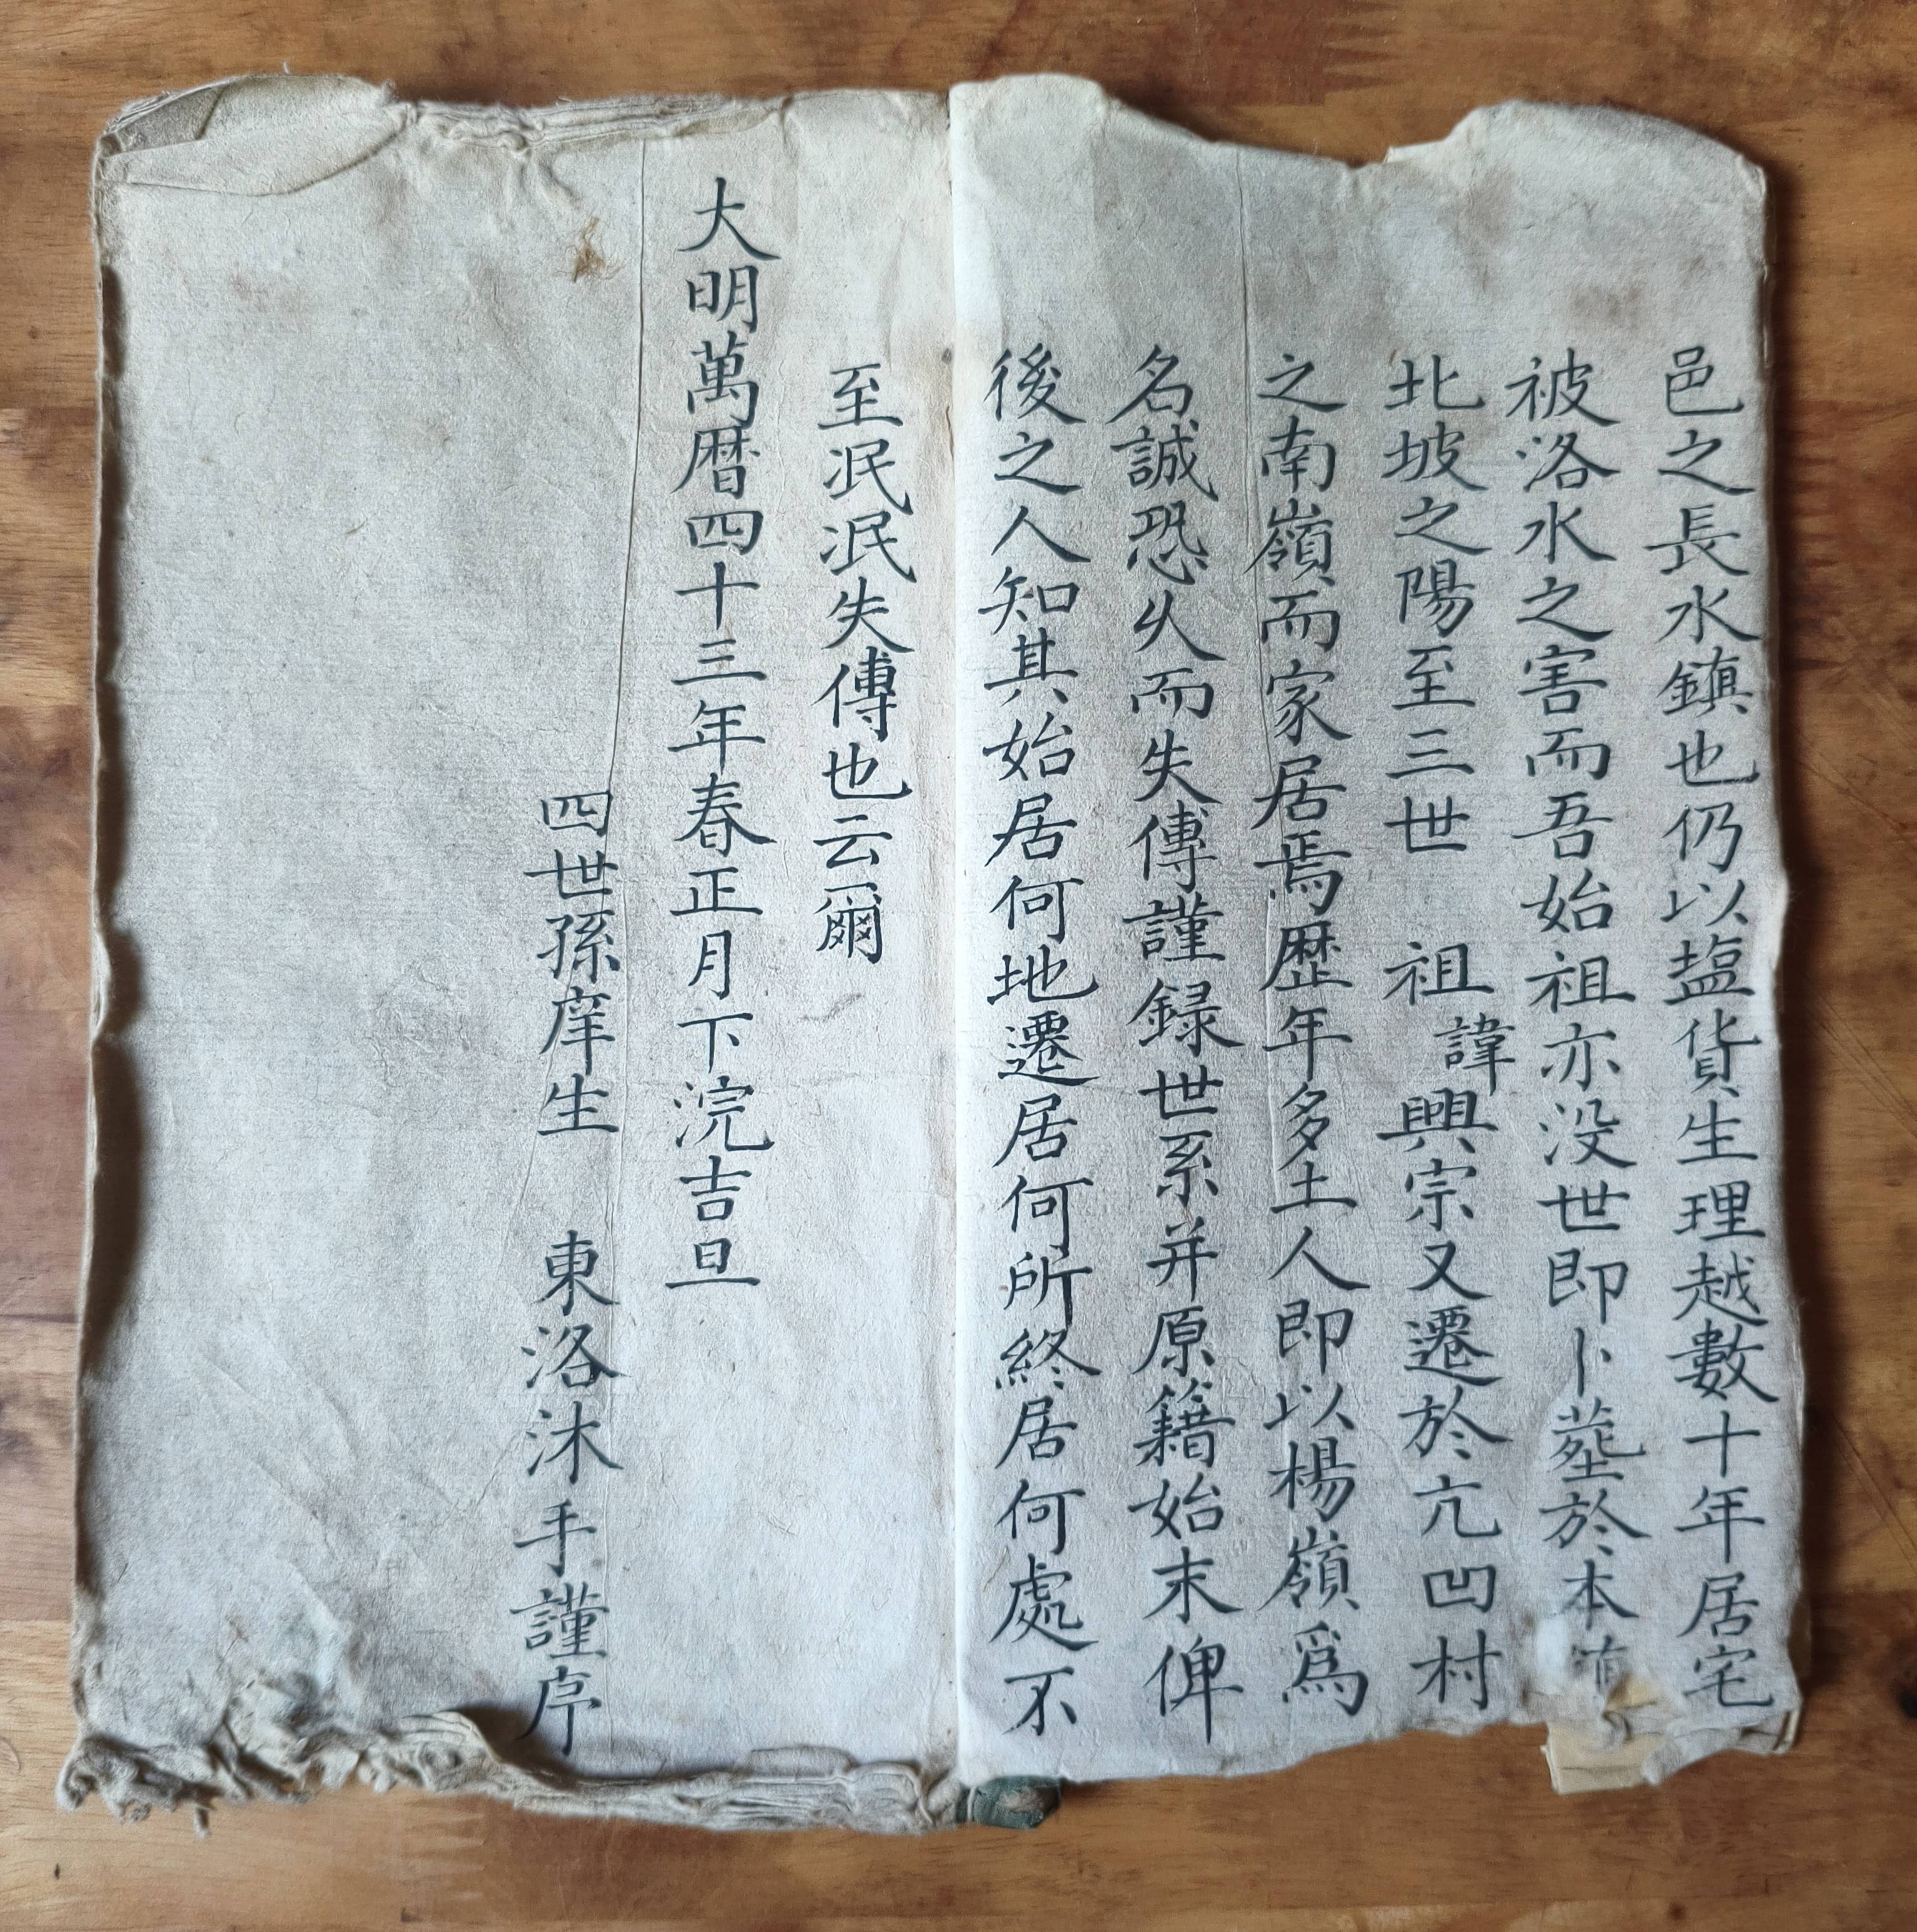 邑之長水鎮也仍以塩貨生理越數十年居宅
被洛水之害而吾始祖亦没世即卜塟於本
北坡之陽至三世 祖諱興宗又遷於亢凹村
之南嶺而家居焉歷年多土人即以楊嶺爲
名誠恐乆而失傳謹録世系并原籍始末俾
後之人知其始居何地遷居何所終居何處不
至泯泯失傳也云爾
大明萬暦四十三年春正月下浣吉旦
四世孫庠生 東洛沐手謹序